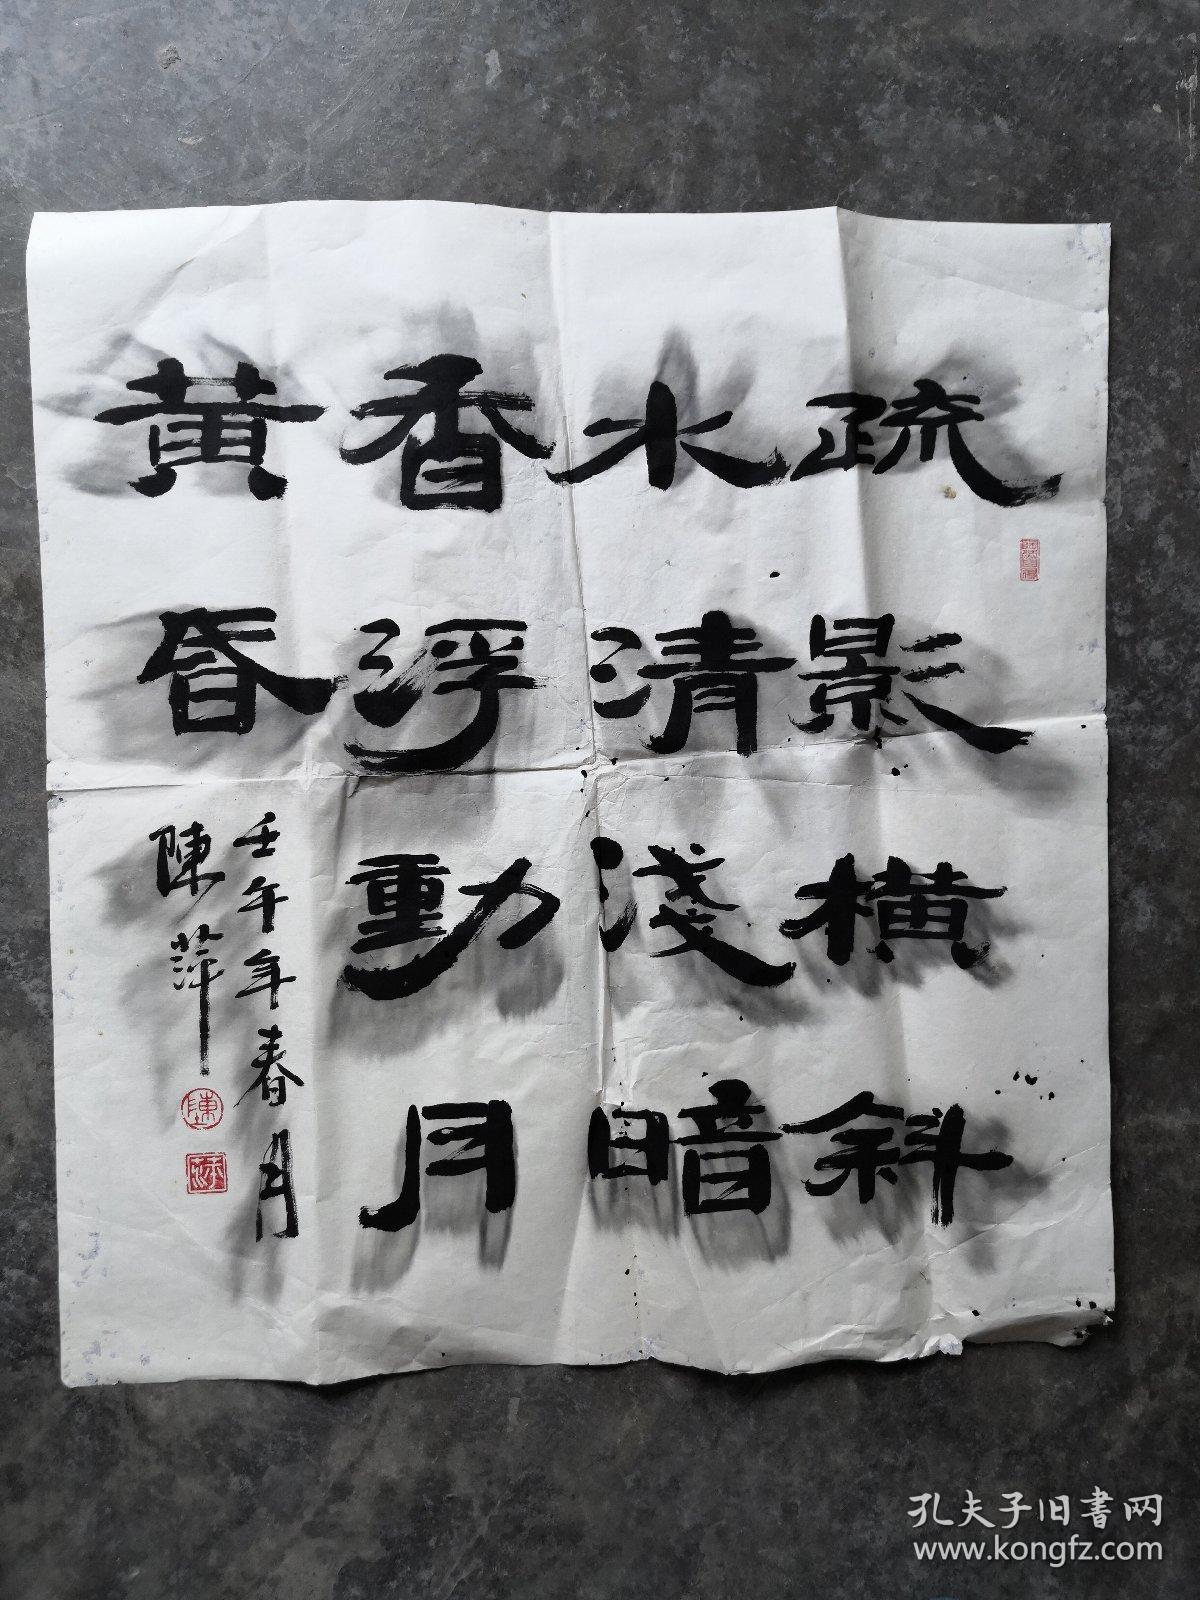 疏影橫斜
水清淺暗
香浮動月
黄昏
壬午年春月
陳萍
陳
孔夫子旧書网
www.kongfz.com